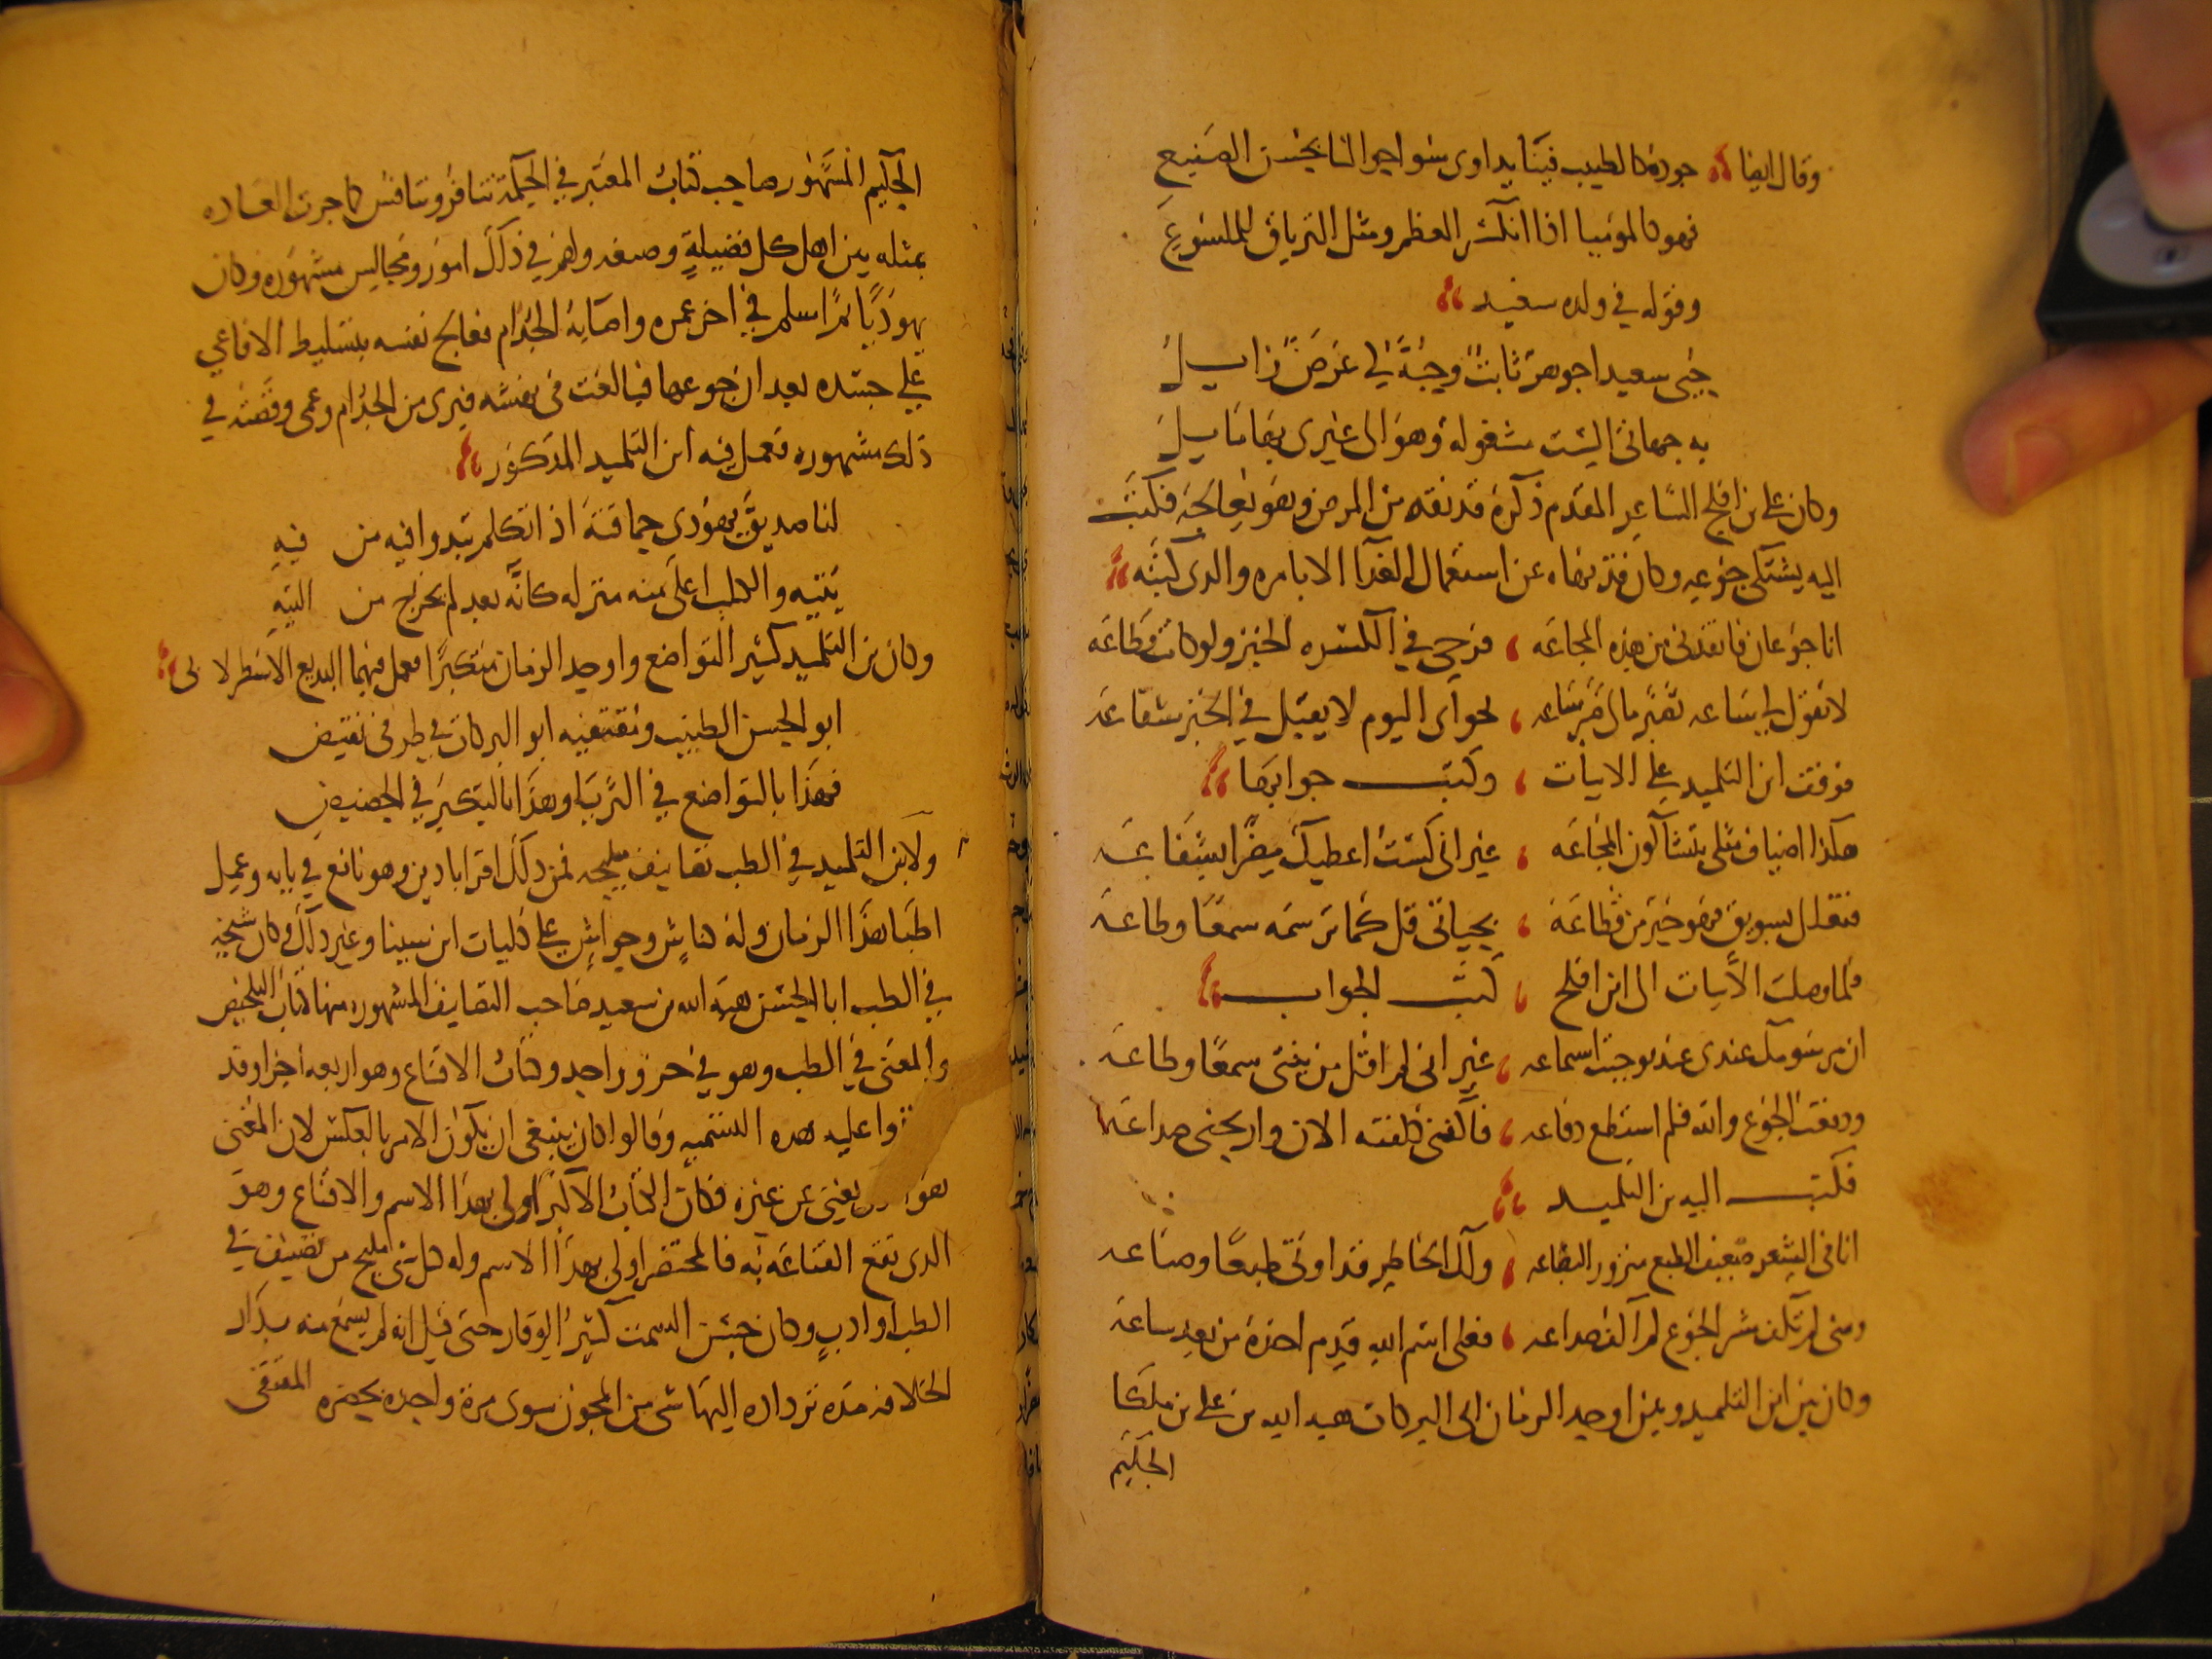 وقال ايضا جوده كالطبيب فينا يداوى سو احوالنا بحسن الصنيع
فهو كالموميا اذا انكسر العظم ومثل الترياق للملسوع
وقوله في ولده سعيد
حبى سعيدا جوهر ثابت وحبه لي عرض زايل
به جهاتى الست مشغوله وهو الى غيرى بها مايل
وكان علي بن افلح الشاعر المقدم ذكره قد نقه من المرض وهو يعالجه فكتب
اليه يشتكى جوعه وكان قد نهاه عن استعمال الغدا الا بامره والدى كتبه
انا جوعان فانقدنى من هذه المجاعه فرجى في الكسره الخبز ولو كانت قطاعه
لا تقول لي ساعه تصبر مالى صبر ساعه فحواى اليوم لا يقبل في الخبز شفاعه
فوقف ابن التلميد على الابيات وكتب جوابها
هكذا اضياف مثلى يتشاكون المجاعه غير انى لست اعطيك مضرا بشفاعه
فتعلل بسويق فهو خير من قطاعه بحياتى قل كما ترسمه سمعا وطاعه
فلما وصلت الابيات الى ابن افلح كتب الجواب
ان مرسومك عندى عند بوجت اسماعه غير انى لم اقل من نيتى سمعا وطاعه
ودفعت الجوع والله فلم استطع دفاعه فاكفنى كلفته الان وارحنى صداعه
فكتب اليه بن التلميد
انا فى الشعر ضعيف الطبع منزور البضاعه ولك الخاطر قد اوتى طبعا وصناعه
ومتى لم تكف شر الجوع لم اكف صداعه فعلى اسم الله قدم اخذه من بعد ساعه
وكان بين ابن التلميد وبين اوحد الزمان ابى البركات هبه الله بن علي بن ملكا
الحكيم
الحكيم المشهور صاحب كتاب المعتبر في الحكمة تنافر وتنافس كما جرت العاده
بمثله بين اهل كل فضيلة وصنعه ولهم في ذلك امور ومجالس مشهوره وكان
يهوديا ثم اسلم في اخر عمره واصابه الجذام فعالج نفسه بتسليط الافاعي
علي جسده بعد ان جوعها فبالغت فى نهشه فبرى من الجذام وعمى وقصته في
ذلك مشهوره فعمل فيه ابن التلميد المذكور
لنا صديق يهودى حماقته اذا تكلم تبدوا فيه من فيه
يتيه والكلب اعلى منه منزله كانه بعد لم يخرج من التيه
وكان بن التلميد كثير التواضع واوحد الزمان متكبرا فعمل فيهما البديع الاسطرلابى
ابو الحسن الطبيب ومقتفيه ابو البركات في طرفى نقيض
فهذا بالتواضع في الثريا وهذا بالتكبر في الحضيض
ولابن التلميد في الطب تصانيف مليحه فمن ذلك اقراباذين وهو نافع في بابه وعمل
اطبا هذا الزمان وله كناش وحواش علي كليات ابن سينا وغير ذلك وكان شيخه
في الطب ابا الحسن هبة الله بن سعيد صاحب التصانيف المشهوره منها كتاب التلخيص
والمغنى في الطب وهو في جزو واحد وكتاب الاقناع وهو اربعه اجزا وقد
وا عليه هده التسميه وقالوا كان ينبغى ان يكون الامر بالعكس لان المغنى
هو يغنى عن غيره فكان الكتاب الاكبر اولى بهذا الاسم والاقناع وهو
الدى تقع القناعه به فالمختصر اولى بهذا الاسم وله كل شى مليح من تصنيف في
الطب او ادب وكان حسن السمت كثير الوقار حتى قيل انه لم يسمع منه بدار
الخلافه مده ترداده اليها شى من المجون سوى مرة واحده بحضره المقتفى